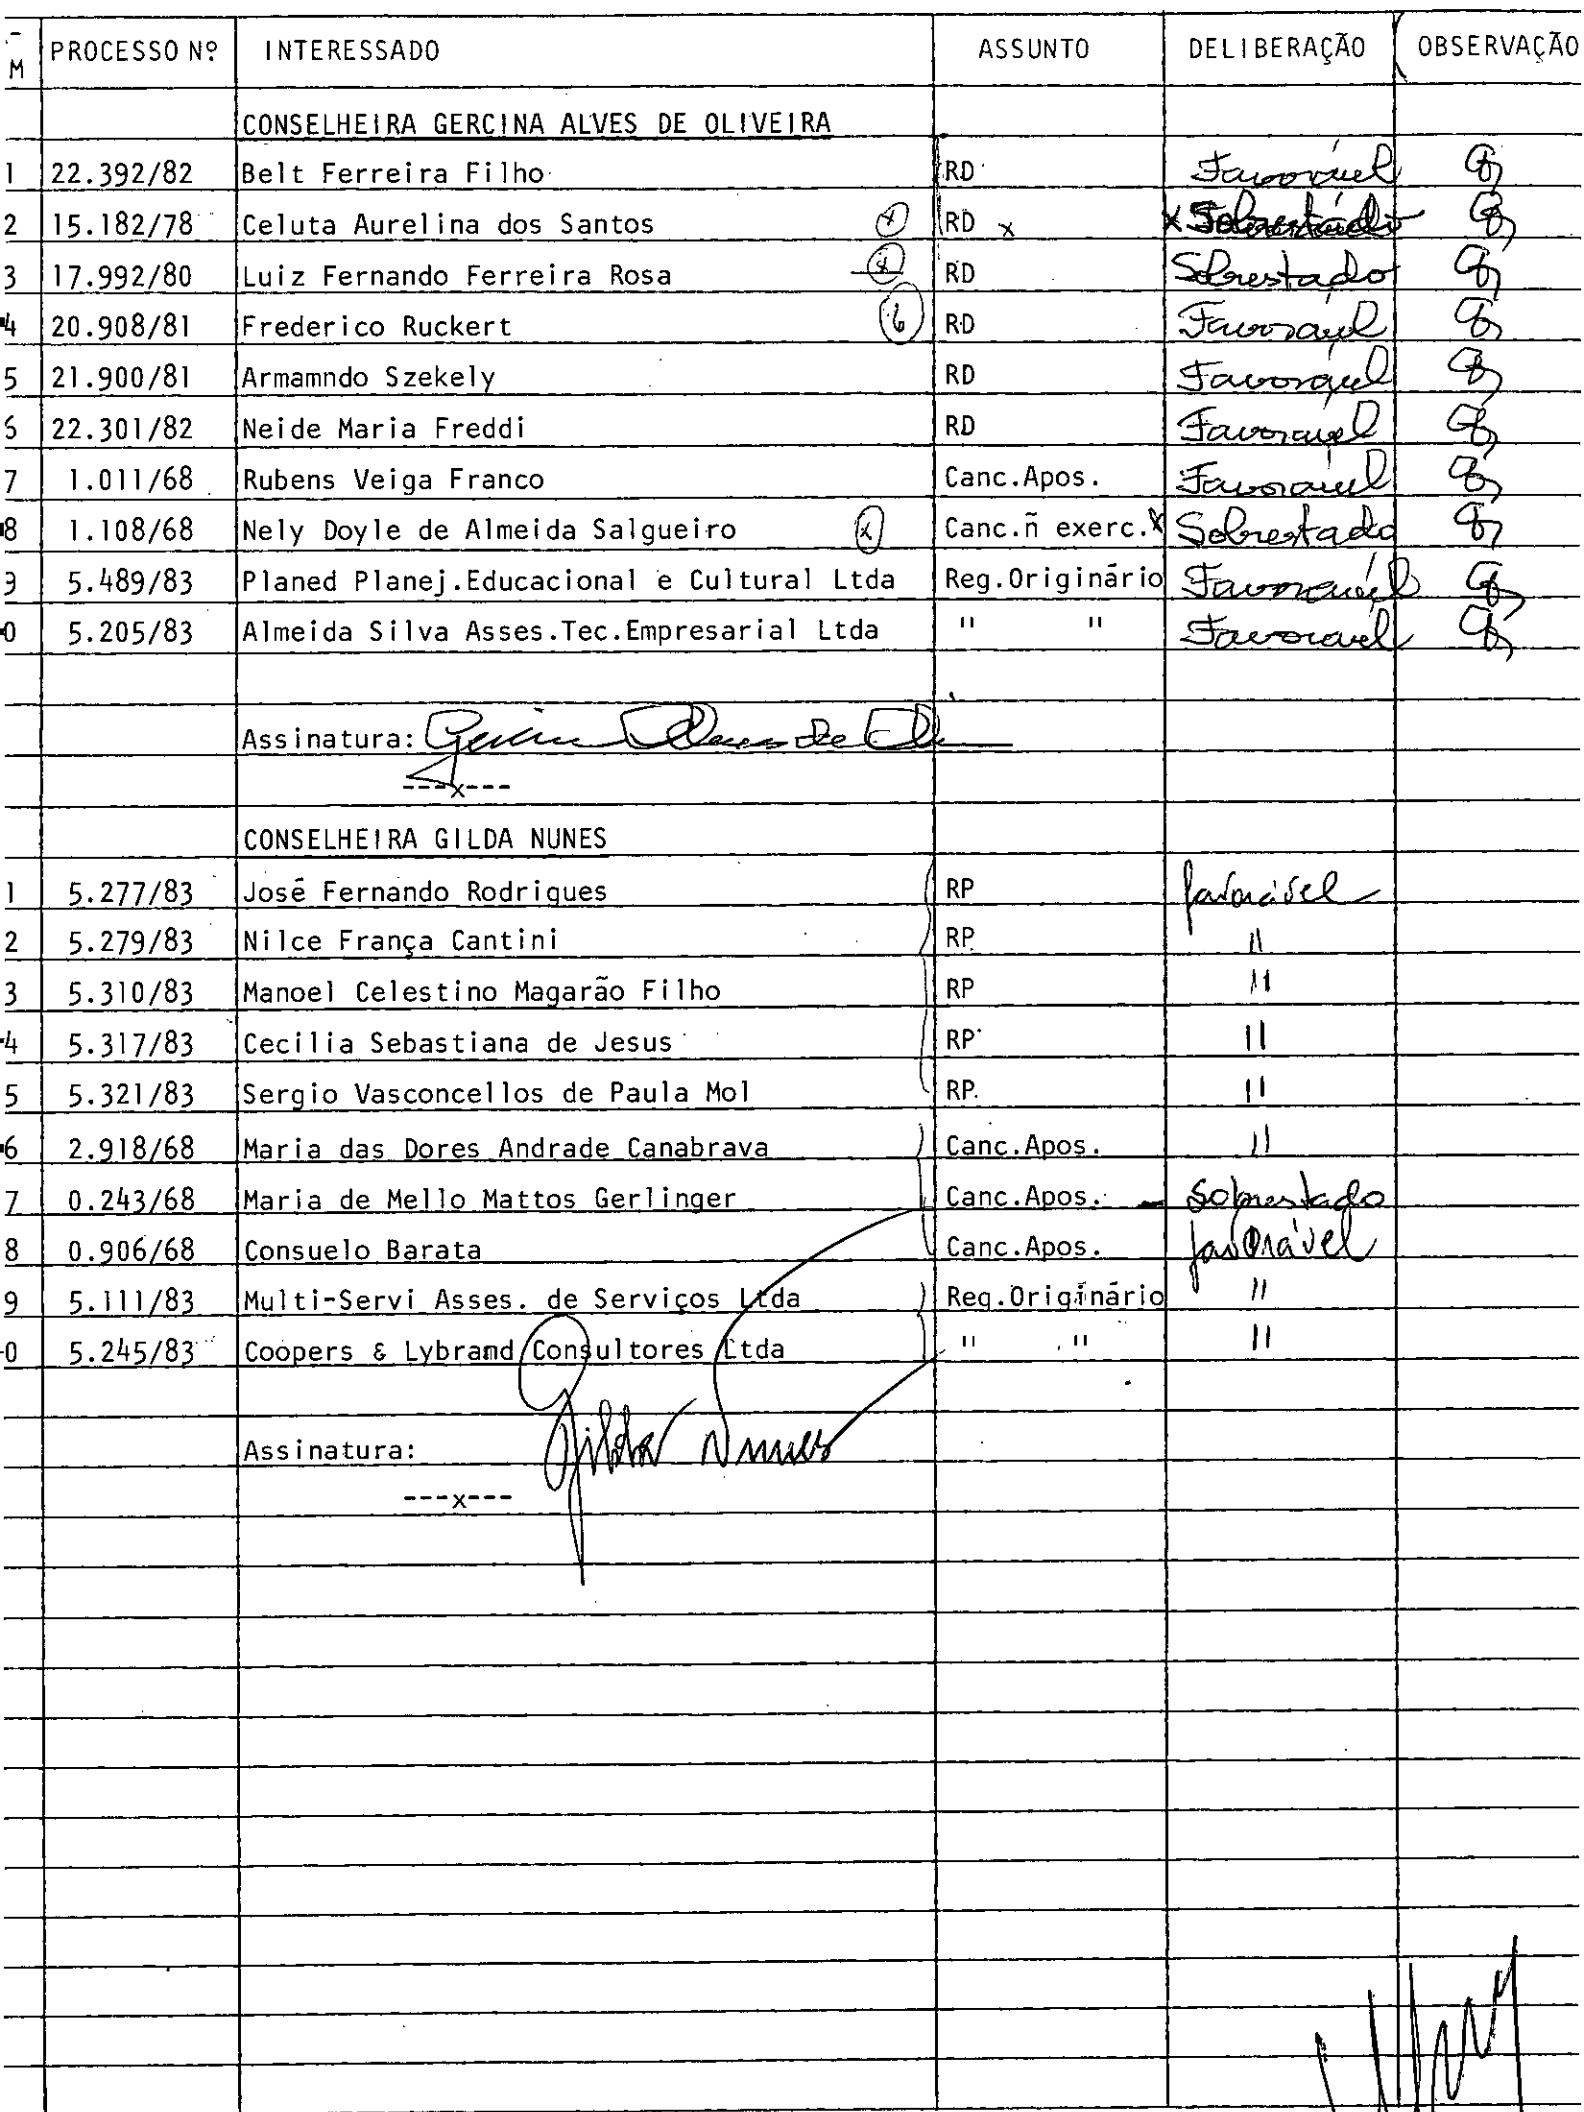 - M PROCESSO Nº INTERESSADO ASSUNTO DELIBERAÇÃO OBSERVAÇÃO
CONSELHEIRA GERCINA ALVES DE OLIVEIRA
1 22.392/82 Belt Ferreira Filho RD Favorável
2 15.182/78 Celuta Aurelina dos Santos (x) RD x x Sobrestado
3 17.992/80 Luiz Fernando Ferreira Rosa (x) RD Sobrestado
4 20.908/81 Frederico Ruckert (6) RD Favorável
5 21.900/81 Armamndo Szekely RD Favorável
6 22.301/82 Neide Maria Freddi RD Favorável
7 1.011/68 Rubens Veiga Franco Canc.Apos. Favorável
8 1.108/68 Nely Doyle de Almeida Salgueiro (x) Canc.ñ exerc. x Sobrestado
9 5.489/83 Planed Planej.Educacional e Cultural Ltda Reg.Originário Favorável
0 5.205/83 Almeida Silva Asses.Tec.Empresarial Ltda " " Favoravel
Assinatura:
---x---
CONSELHEIRA GILDA NUNES
1 5.277/83 José Fernando Rodrigues RP favorável
2 5.279/83 Nilce França Cantini RP "
3 5.310/83 Manoel Celestino Magarão Filho RP "
4 5.317/83 Cecilia Sebastiana de Jesus RP "
5 5.321/83 Sergio Vasconcellos de Paula Mol RP. "
6 2.918/68 Maria das Dores Andrade Canabrava Canc.Apos. "
7 0.243/68 Maria de Mello Mattos Gerlinger Canc.Apos. - Sobrestado
8 0.906/68 Consuelo Barata Canc.Apos. favorável
9 5.111/83 Multi-Servi Asses. de Serviços Ltda Reg.Originário "
0 5.245/83 Coopers & Lybramd Consultores Ltda " " "
Assinatura: Gilda Nunes
---x---